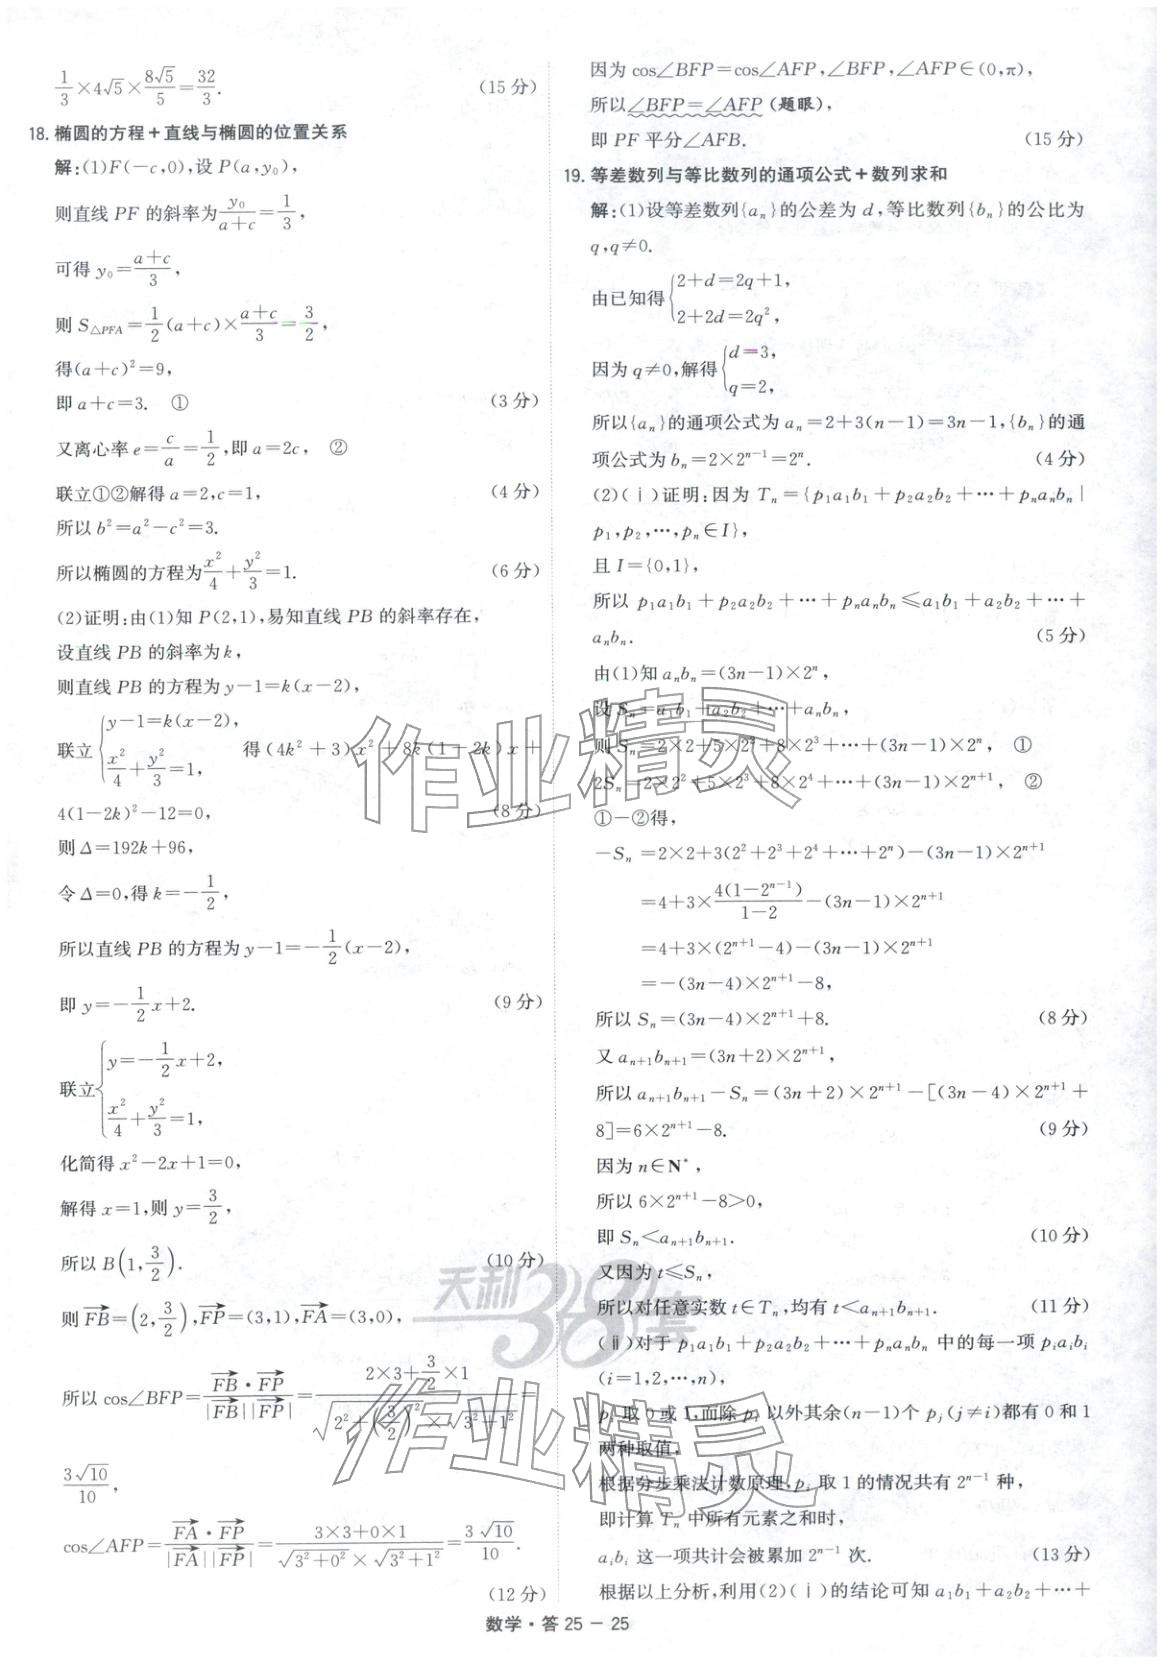 1/3×4√5×8√5/5=32/3. (15 分)
18. 椭圆的方程+直线与椭圆的位置关系
解:(1)F(-c,0),设 P(a,y₀),
则直线 PF 的斜率为y₀/(a+c)=1/3,
可得 y₀=(a+c)/3,
则 S△PFA=1/2(a+c)×(a+c)/3=3/2,
得(a+c)²=9,
即 a+c=3. ① (3 分)
又离心率 e=c/a=1/2,即 a=2c, ②
联立①②解得 a=2,c=1, (4 分)
所以 b²=a²-c²=3.
所以椭圆的方程为x²/4+y²/3=1. (6 分)
(2)证明:由(1)知 P(2,1),易知直线 PB 的斜率存在,
设直线 PB 的斜率为 k,
则直线 PB 的方程为 y-1=k(x-2),
联立{y-1=k(x-2), x²/4+y²/3=1, 得(4k²+3)x²+8k(1-2k)x+
4(1-2k)²-12=0, (8 分)
则 Δ=192k+96,
令 Δ=0,得 k=-1/2,
所以直线 PB 的方程为 y-1=-1/2(x-2),
即 y=-1/2x+2. (9 分)
联立{y=-1/2x+2, x²/4+y²/3=1,
化简得 x²-2x+1=0,
解得 x=1,则 y=3/2,
所以 B(1,3/2). (10 分)
则 FB→=(2,3/2),FP→=(3,1),FA→=(3,0),
所以 cos∠BFP=FB→·FP→/(|FB→||FP→|)=(2×3+3/2×1)/(√(2²+(3/2)²)×√(3²+1²))=
3√10/10,
cos∠AFP=FA→·FP→/(|FA→||FP→|)=(3×3+0×1)/(√(3²+0²)×√(3²+1²))=3√10/10.
(12 分)
因为 cos∠BFP=cos∠AFP,∠BFP,∠AFP∈(0,π),
所以∠BFP=∠AFP(题眼),
即 PF 平分∠AFB. (15 分)
19. 等差数列与等比数列的通项公式+数列求和
解:(1)设等差数列{aₙ}的公差为 d,等比数列{bₙ}的公比为
q,q≠0.
由已知得{2+d=2q+1, 2+2d=2q²,
因为 q≠0,解得{d=3, q=2,
所以{aₙ}的通项公式为 aₙ=2+3(n-1)=3n-1,{bₙ}的通
项公式为 bₙ=2×2ⁿ⁻¹=2ⁿ. (4 分)
(2)(ⅰ)证明:因为 Tₙ={p₁a₁b₁+p₂a₂b₂+…+pₙaₙbₙ|
p₁,p₂,…,pₙ∈I},
且 I={0,1},
所以 p₁a₁b₁+p₂a₂b₂+…+pₙaₙbₙ≤a₁b₁+a₂b₂+…+
aₙbₙ. (5 分)
由(1)知 aₙbₙ=(3n-1)×2ⁿ,
设 Sₙ=a₁b₁+a₂b₂+…+aₙbₙ,
则 Sₙ=2×2+5×2²+8×2³+…+(3n-1)×2ⁿ, ①
2Sₙ=2×2²+5×2³+8×2⁴+…+(3n-1)×2ⁿ⁺¹, ②
①-②得,
-Sₙ=2×2+3(2²+2³+2⁴+…+2ⁿ)-(3n-1)×2ⁿ⁺¹
=4+3×4(1-2ⁿ⁻¹)/(1-2)-(3n-1)×2ⁿ⁺¹
=4+3×(2ⁿ⁺¹-4)-(3n-1)×2ⁿ⁺¹
=-(3n-4)×2ⁿ⁺¹-8,
所以 Sₙ=(3n-4)×2ⁿ⁺¹+8. (8 分)
又 aₙ₊₁bₙ₊₁=(3n+2)×2ⁿ⁺¹,
所以 aₙ₊₁bₙ₊₁-Sₙ=(3n+2)×2ⁿ⁺¹-[(3n-4)×2ⁿ⁺¹+
8]=6×2ⁿ⁺¹-8. (9 分)
因为 n∈N*,
所以 6×2ⁿ⁺¹-8>0,
即 Sₙ<aₙ₊₁bₙ₊₁. (10 分)
又因为 t≤Sₙ,
所以对任意实数 t∈Tₙ,均有 t<aₙ₊₁bₙ₊₁. (11 分)
(ⅱ)对于 p₁a₁b₁+p₂a₂b₂+…+pₙaₙbₙ 中的每一项 pᵢaᵢbᵢ
(i=1,2,…,n),
pᵢ 取 0 或 1,而除 pᵢ 以外其余(n-1)个 pⱼ(j≠i)都有 0 和 1
两种取值,
根据分步乘法计数原理,pᵢ 取 1 的情况共有 2ⁿ⁻¹ 种,
即计算 Tₙ 中所有元素之和时,
aᵢbᵢ 这一项共计会被累加 2ⁿ⁻¹ 次. (13 分)
根据以上分析,利用(2)(ⅰ)的结论可知 a₁b₁+a₂b₂+…+
数学·答 25-25
作业精灵
天利38套
作业精灵